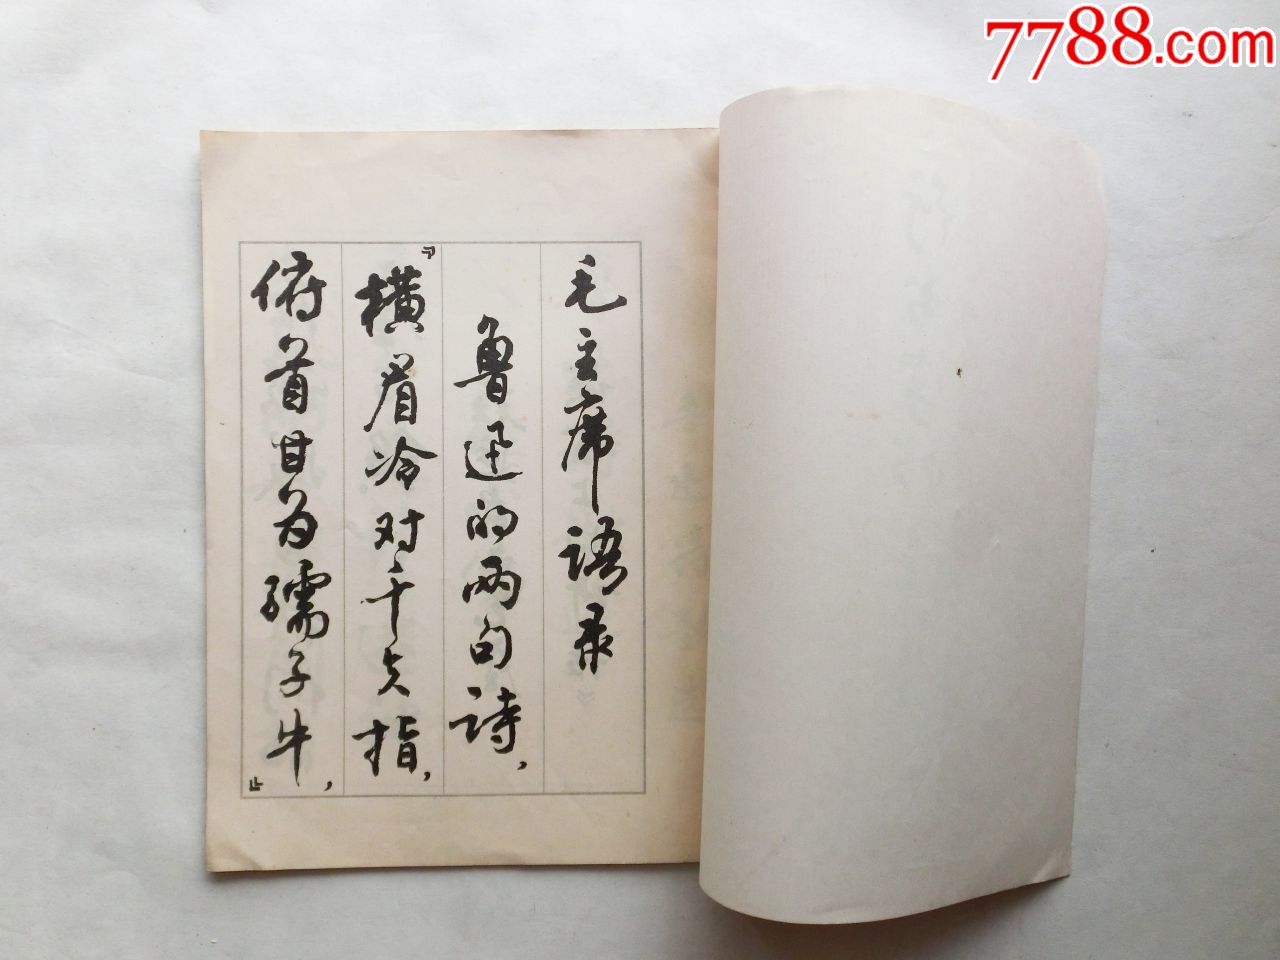 7788.com
毛主席语录
鲁迅的两句诗，
『横眉冷对千夫指，
俯首甘为孺子牛，』